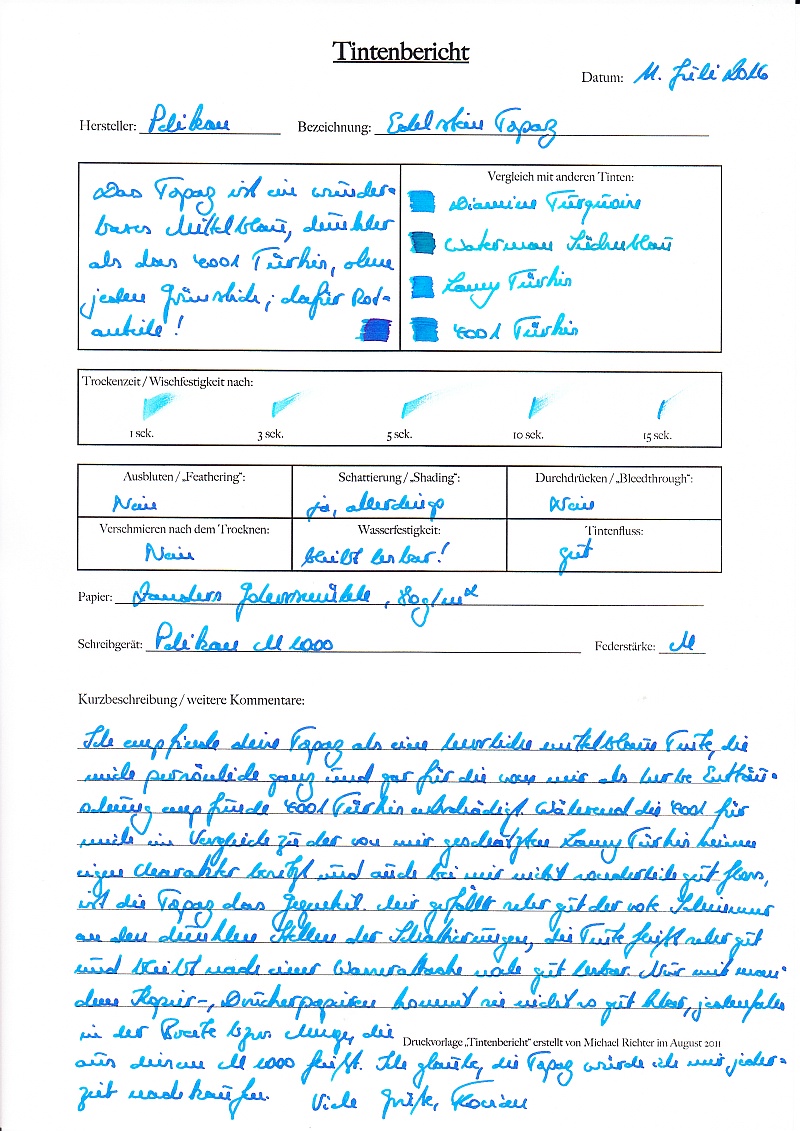 Tintenbericht
Datum: 11. Juli 2016
Hersteller: Pelikan Bezeichnung: Edelstein Topaz
Das Topaz ist ein wunder-
bares Mittelblau, dunkler
als das 4001 Türkis, ohne
jeden Grünstich; dafür Rot-
anteile!
Vergleich mit anderen Tinten:
Diamine Turquoise
Waterman Südseeblau
Lamy Türkis
4001 Türkis
Trockenzeit / Wischfestigkeit nach:
1 sek. 3 sek. 5 sek. 10 sek. 15 sek.
Ausbluten / „Feathering": Schattierung / „Shading": Durchdrücken / „Bleedthrough":
Nein ja, allerdings Nein
Verschmieren nach dem Trocknen: Wasserfestigkeit: Tintenfluss:
Nein bleibt lesbar! gut
Papier: Zanders Gohrsmühle, 80g/m²
Schreibgerät: Pelikan M 1000 Federstärke: M
Kurzbeschreibung / weitere Kommentare:
Ich empfinde deine Topaz als eine herrliche mittelblaue Tinte, die
mich persönlich ganz und gar für die von mir als herbe Enttäu-
schung empfunde 4001 Türkis entschädigt. Während die 4001 für
mich im Vergleich zu der von mir geschätzten Lamy Türkis keinen
eigen Charakter besitzt und auch bei mir nicht sonderlich gut floss,
ist die Topaz das Gegenteil. Mir gefällt sehr gut der rote Schimmer
an den dunklen Stellen der Schattierungen, die Tinte fließt sehr gut
und bleibt nach einer Wasserattacke noch gut lesbar. Nur mit man-
chen Kopier-, Druckerpapieren kommt sie nicht so gut klar, jedenfalls
in der Breite bzw. Menge, die
Druckvorlage „Tintenbericht" erstellt von Michael Richter im August 2011
aus deinem M 1000 fließt. Ich glaube, die Topaz würde ich mir jeder-
zeit nachkaufen. Viele Grüße, Florian